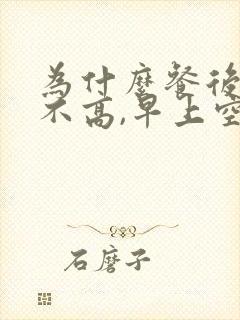 為什麼餐後
不高,早上空
石磨子